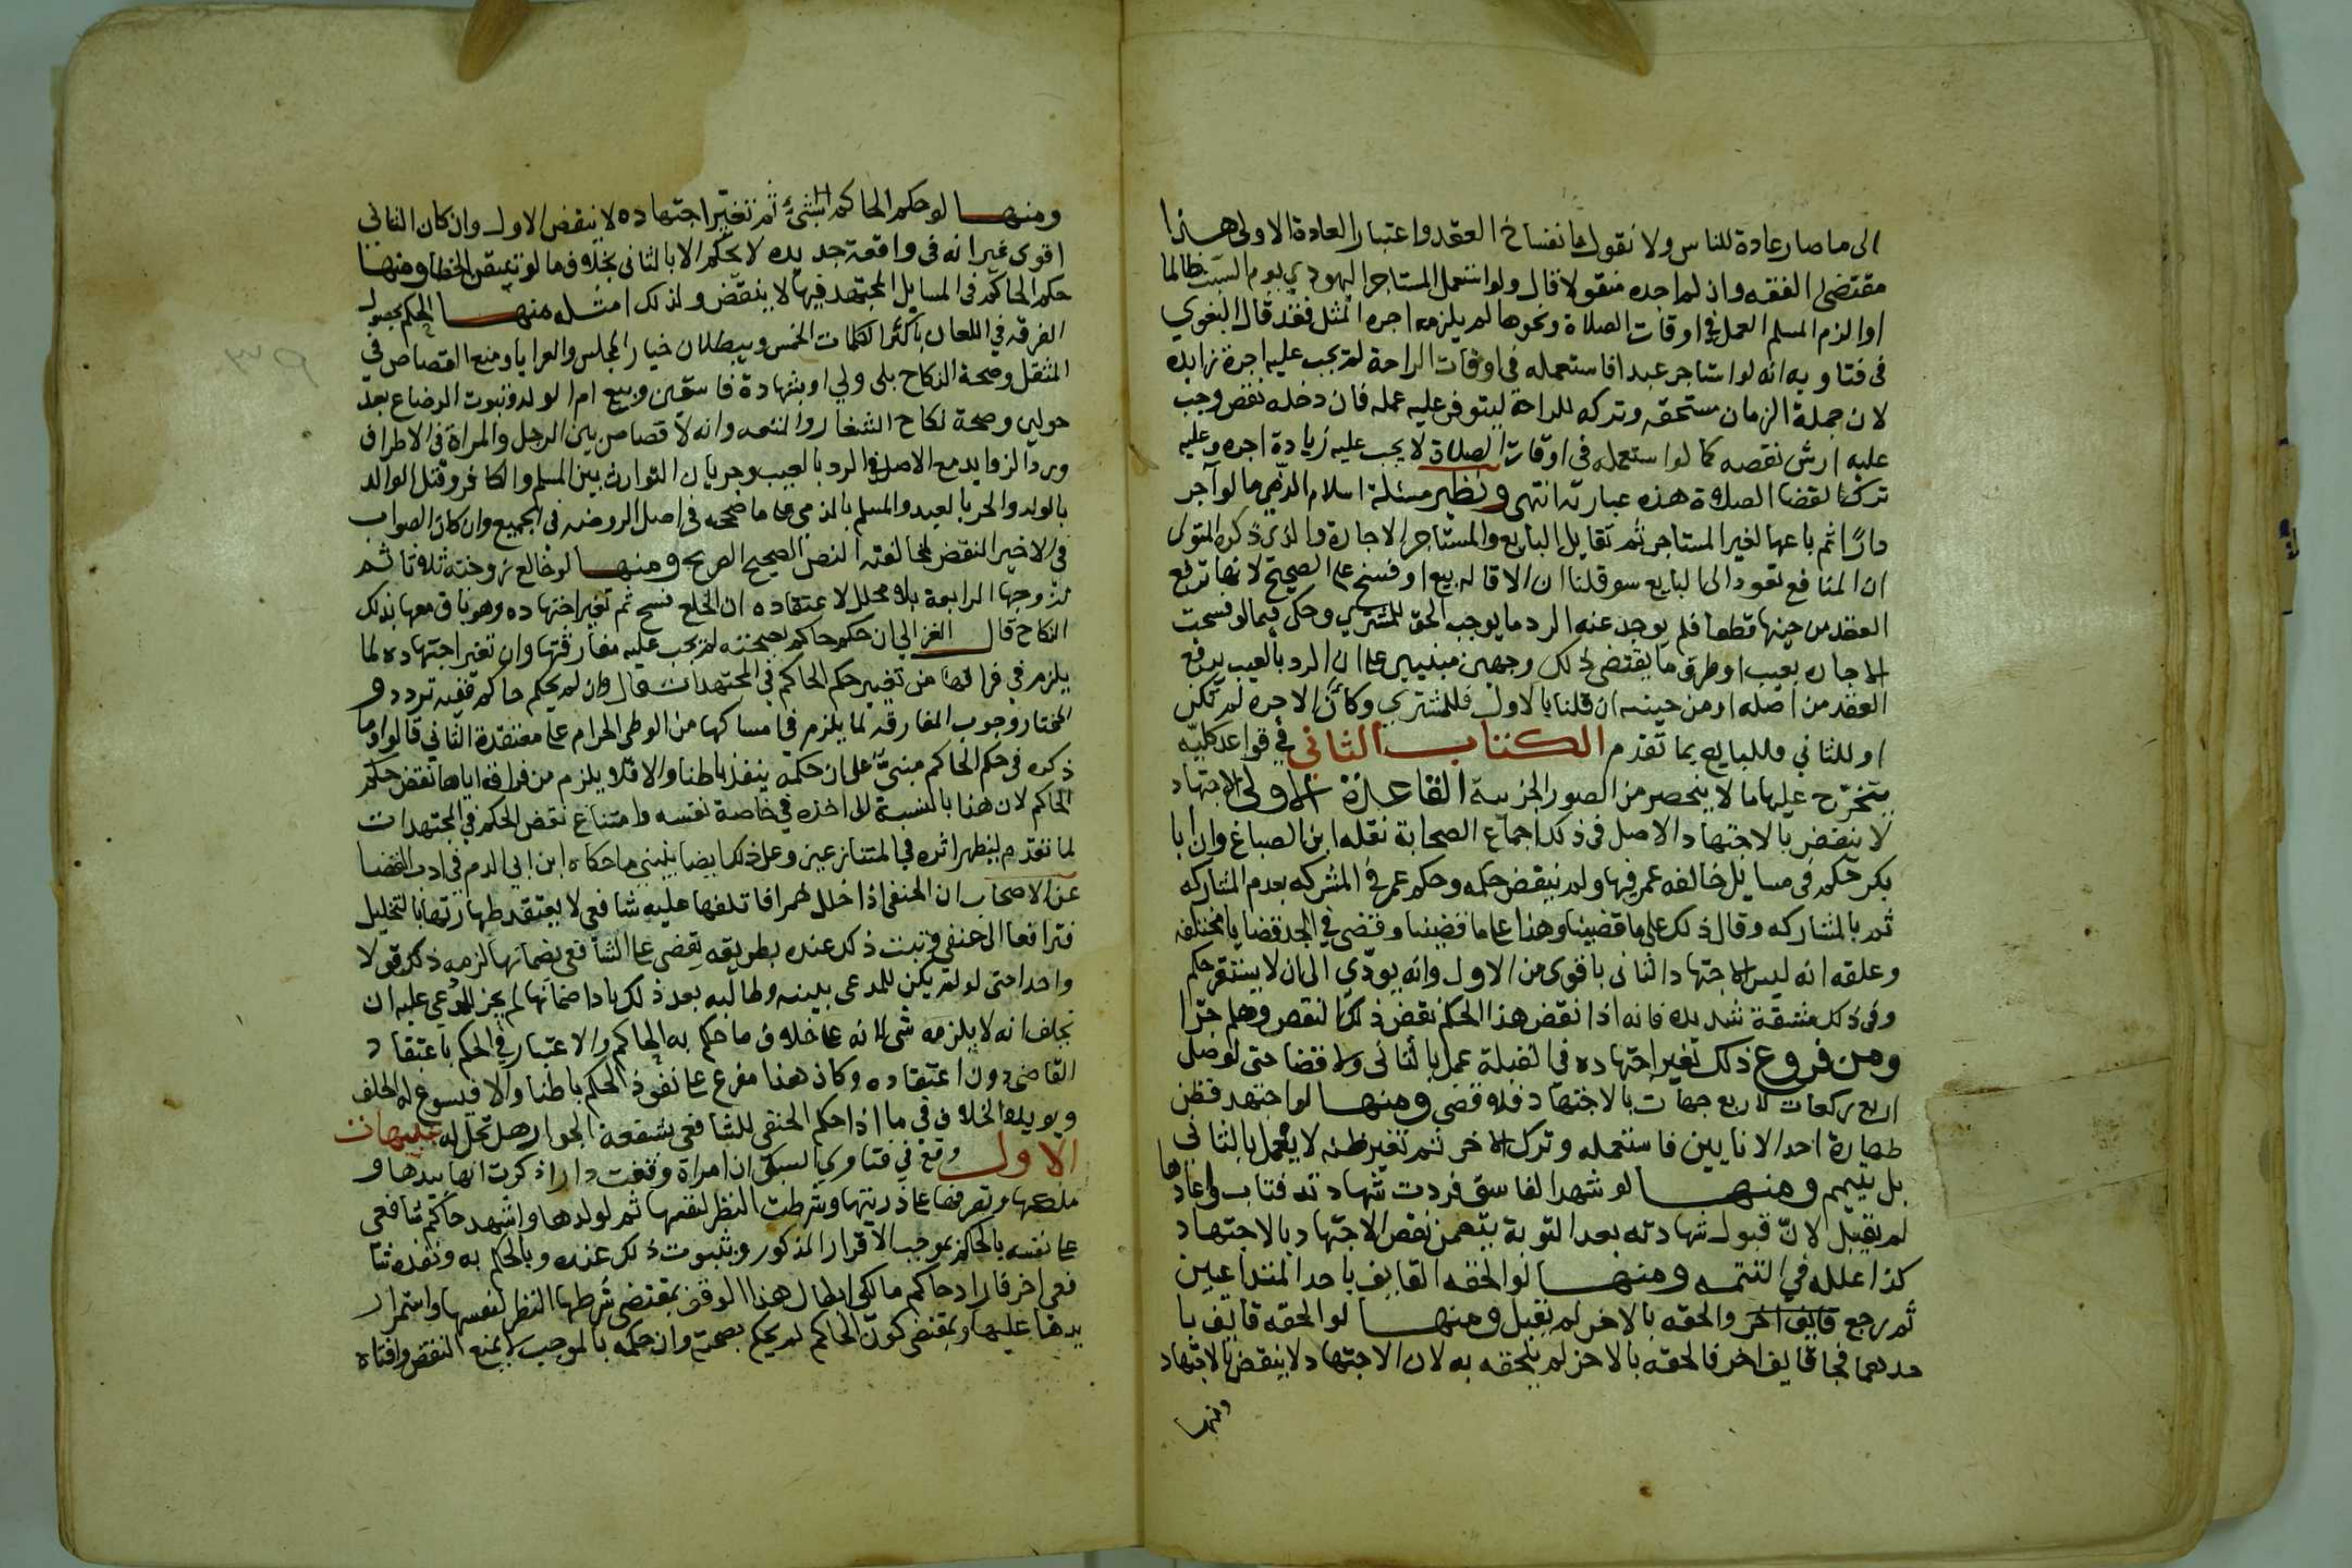 الى ما صار عادة للناس ولا نقول بانفساخ العقد واعتبار العادة الاولى هذا
مقتضى الفقه وان لم اجده منقولا قال ولو استعمل المستاجر اليهودي يوم السبت ظالما
او الزم المسلم العمل في اوقات الصلاة ونحوها لم يلزمه اجرة المثل فقد قال البغوي
في فتاويه انه لو استاجر عبدا فاستعمله في اوقات الراحة لم تجب عليه اجرة زايده
لان جملة الزمان مستحقه وتركه للراحة ليتوفر عليه عمله فان دخله نقص وجب
عليه ارش نقصه كما لو استعمله في اوقات الصلاة لا يجب عليه زيادة اجره وعليه
تركه لقضا الصلاة هذه عبارته انتهى ونظير مسئلة اسلام الذمي ما لو آجر
دارًا ثم باعها لغير المستاجر ثم تقايل البايع والمستاجر الاجارة والذي ذكره المتولي
ان المنافع تعود الى البايع سو قلنا ان الاقاله بيع او فسخ على الصحيح لانها ترفع
العقد من حينها قطعا فلم يوجد عند الرد ما يوجب الحق للمشتري وحكى فيما لو فسخت
الاجاره بعيب او طرق ما يقتضى ذلك وجهين مبنيين على ان الرد بالعيب يرفع
العقد من اصله او من حينه ان قلنا بالاول فللمشتري وكأن الاجره لم تكن
او للثاني فللبايع بما تقدم الكتاب الثاني في قواعد كليّه
يتخرّج عليها ما لا ينحصر من الصور الجزئية القاعدة الاولى الاجتهاد
لا ينقض بالاجتهاد الاصل في ذلك اجماع الصحابة نقله ابن الصباغ وان ابا
بكر حكم في مسايل خالفه عمر فيها ولم ينقض حكمه وحكم عمر في المشركه بعدم المشاركه
ثم بالمشاركه وقال ذلك على ما قضينا وهذا على ما قضينا وقضى في الجد قضايا مختلفه
وعلته انه ليس الاجتهاد الثاني باقوى من الاول وانه يودّي الى ان لا يستقر حكم
وفي ذلك مشقة شديده فانه اذا نقض هذا الحكم نقض ذلك النقض وهلم جرّا
ومن فروع ذلك تغير اجتهاده في القبلة عمل بالثاني ولا قضا حتى لو صلى
اربع ركعات لاربع جهات بالاجتهاد فلا قضى ومنها لو اجتهد فظن
طهارة احد الانايين فاستعمله وترك الاخر ثم تغير ظنه لا يعمل بالثاني
بل يتيمم ومنها لو شهد الفاسق فردت شهادته فتاب واعادها
لم تقبل لانّ قبول شهادته بعد التوبة يتضمن نقض الاجتهاد بالاجتهاد
كذا علله في التتمه ومنها لو الحقه القايف باحد المتداعيين
ثم رجع قايف اخر والحقه بالاخر لم تقبل ومنها لو الحقه قايف با
حدهما فجا قايف اخر فالحقه بالاخر لم يلحقه به لان الاجتهاد لا ينقض بالاجتهاد
ومنها
ومنها لو حكم الحاكم بشيء ثم تغيّر اجتهاده لا ينقض الاول وان كان الثاني
اقوى غير انه في واقعة جديده لا يحكم الا بالثاني بخلاف ما لو تيقن الخطا ومنها
حكم الحاكم في المسايل المجتهد فيها لا ينقض ولذلك امثله منها الحكم بحصول
الفرقه في اللعان باكثر الكلمات الخمس وببطلان خيار المجلس والعرايا ومنع القصاص في
المثقل وصحة النكاح بلى ولي او بشهادة فاسقين وبيع ام الولد وثبوت الرضاع بعد
حولين وصحة نكاح الشغار والمتعه وانه لا قصاص بين الرجل والمراة في الاطراف
ورد الزوايد مع الاصل في الرد بالعيب وجريان التوارث بين المسلم والكافر وقتل الوالد
بالولد والحر بالعبد والمسلم بالذمي على ما صححه في اصل الروضه في الجميع وان كان الصواب
في الاخير النقض لمخالفته النص الصحيح الصريح ومنها لو خالع زوجته ثلاثا ثم
تزوجها الرابعة بلا محلل لاعتقاده ان الخلع فسخ ثم تغير اجتهاده وهو باق معها بذلك
النكاح قال الغزالي ان حكم حاكم بصحته لم يجب عليه مفارقتها وان تغير اجتهاده لما
يلزم في فراقها من تغيير حكم الحاكم في المجتهدات قال وان لم يحكم حاكم ففيه تردد و
المختار وجوب المفارقه لما يلزم في امساكها من الوطى الحرام على معتقدة الثاني قالوا وما
ذكره في حكم الحاكم مبنيّ على ان حكمه ينفذ باطنا والا فلا يلزم من فراقه اياها نقض حكم
الحاكم لان هذا بالنسبة الى اخذه في خاصة نفسه وامتناع نقض الحكم في المجتهدات
لما تقدم ليظهر اثره في المتنازعين وعلى ذلك ايضا ينبني ما حكاه ابن ابي الدم في ادب القضا
عن الاصحاب ان الحنفي اذا خلل خمرا فاتلفها عليه شافعي لا يعتقد طهارتها بالتخليل
فترافعا الى حنفي وثبت ذلك عنده بطريقه يقضى على الشافعي بضمانها لزمه ذلك قولا
واحدا حتى لو لم يكن للمدعى بينه وطالبه بعد ذلك باداضمانها لم يجز للمدعي عليه ان
يحلف انه لا يلزمه شي لانه على خلاف ما حكم به الحاكم والاعتبار في الحكم باعتقاد
القاضى دون اعتقاده وكان هذا مفرع على نفوذ الحكم باطنا والا فيسوغ له الحلف
ويويده الخلاف في ما اذا حكم الحنفي للشافعي بشفعة الجوار هل تحل له تنبيهات
الاول وقع في فتاوي السبكي ان امراة وقفت دارا ذكرت انها بيدها و
ملكها وتصرفها على ذريتها وشرطت النظر لنفسها ثم لولدها واشهد حاكم شافعي
على نفسه بالحكم بموجب الاقرار المذكور وبثبوت ذلك عنده وبالحكم به ونفذه شا
فعي اخر فاراد حاكم مالكي ابطال هذا الوقف بمقتضى شرطها النظر لنفسها واستمرار
يدها عليها وبمقتضى كون الحاكم لم يحكم بصحته وان حكمه بالموجب لا يمنع النقض وافتاه